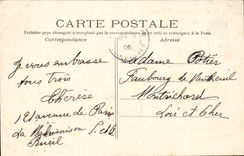 CARTE POSTALE
Certains pays étrangers n'acceptent pas la correspondance de ce côté, se renseigner à la Poste
Correspondance
Adresse
Je vous embrasse
tous trois
Thérèse
121 avenue de Paris
La Malmaison S. et O.
Rueil
Madame Potier
Faubourg de Nanteuil
Montrichard
Loir et Cher